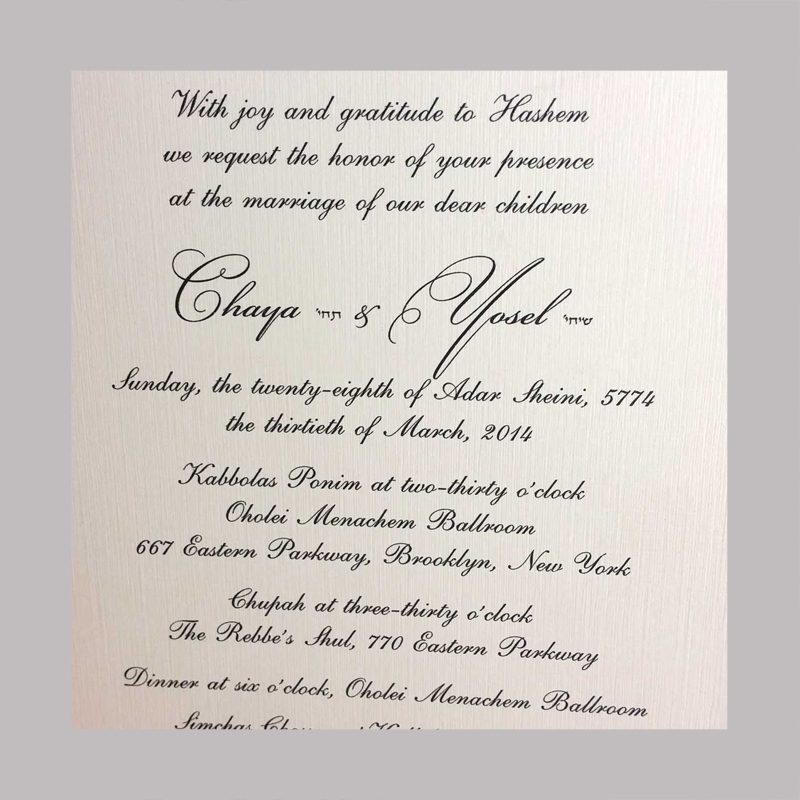 With joy and gratitude to Hashem
we request the honor of your presence
at the marriage of our dear children
Chaya תחי' & Yosel שיחי'
Sunday, the twenty-eighth of Adar Sheini, 5774
the thirtieth of March, 2014
Kabbolas Ponim at two-thirty o'clock
Oholei Menachem Ballroom
667 Eastern Parkway, Brooklyn, New York
Chupah at three-thirty o'clock
The Rebbe's Shul, 770 Eastern Parkway
Dinner at six o'clock, Oholei Menachem Ballroom
Simchas